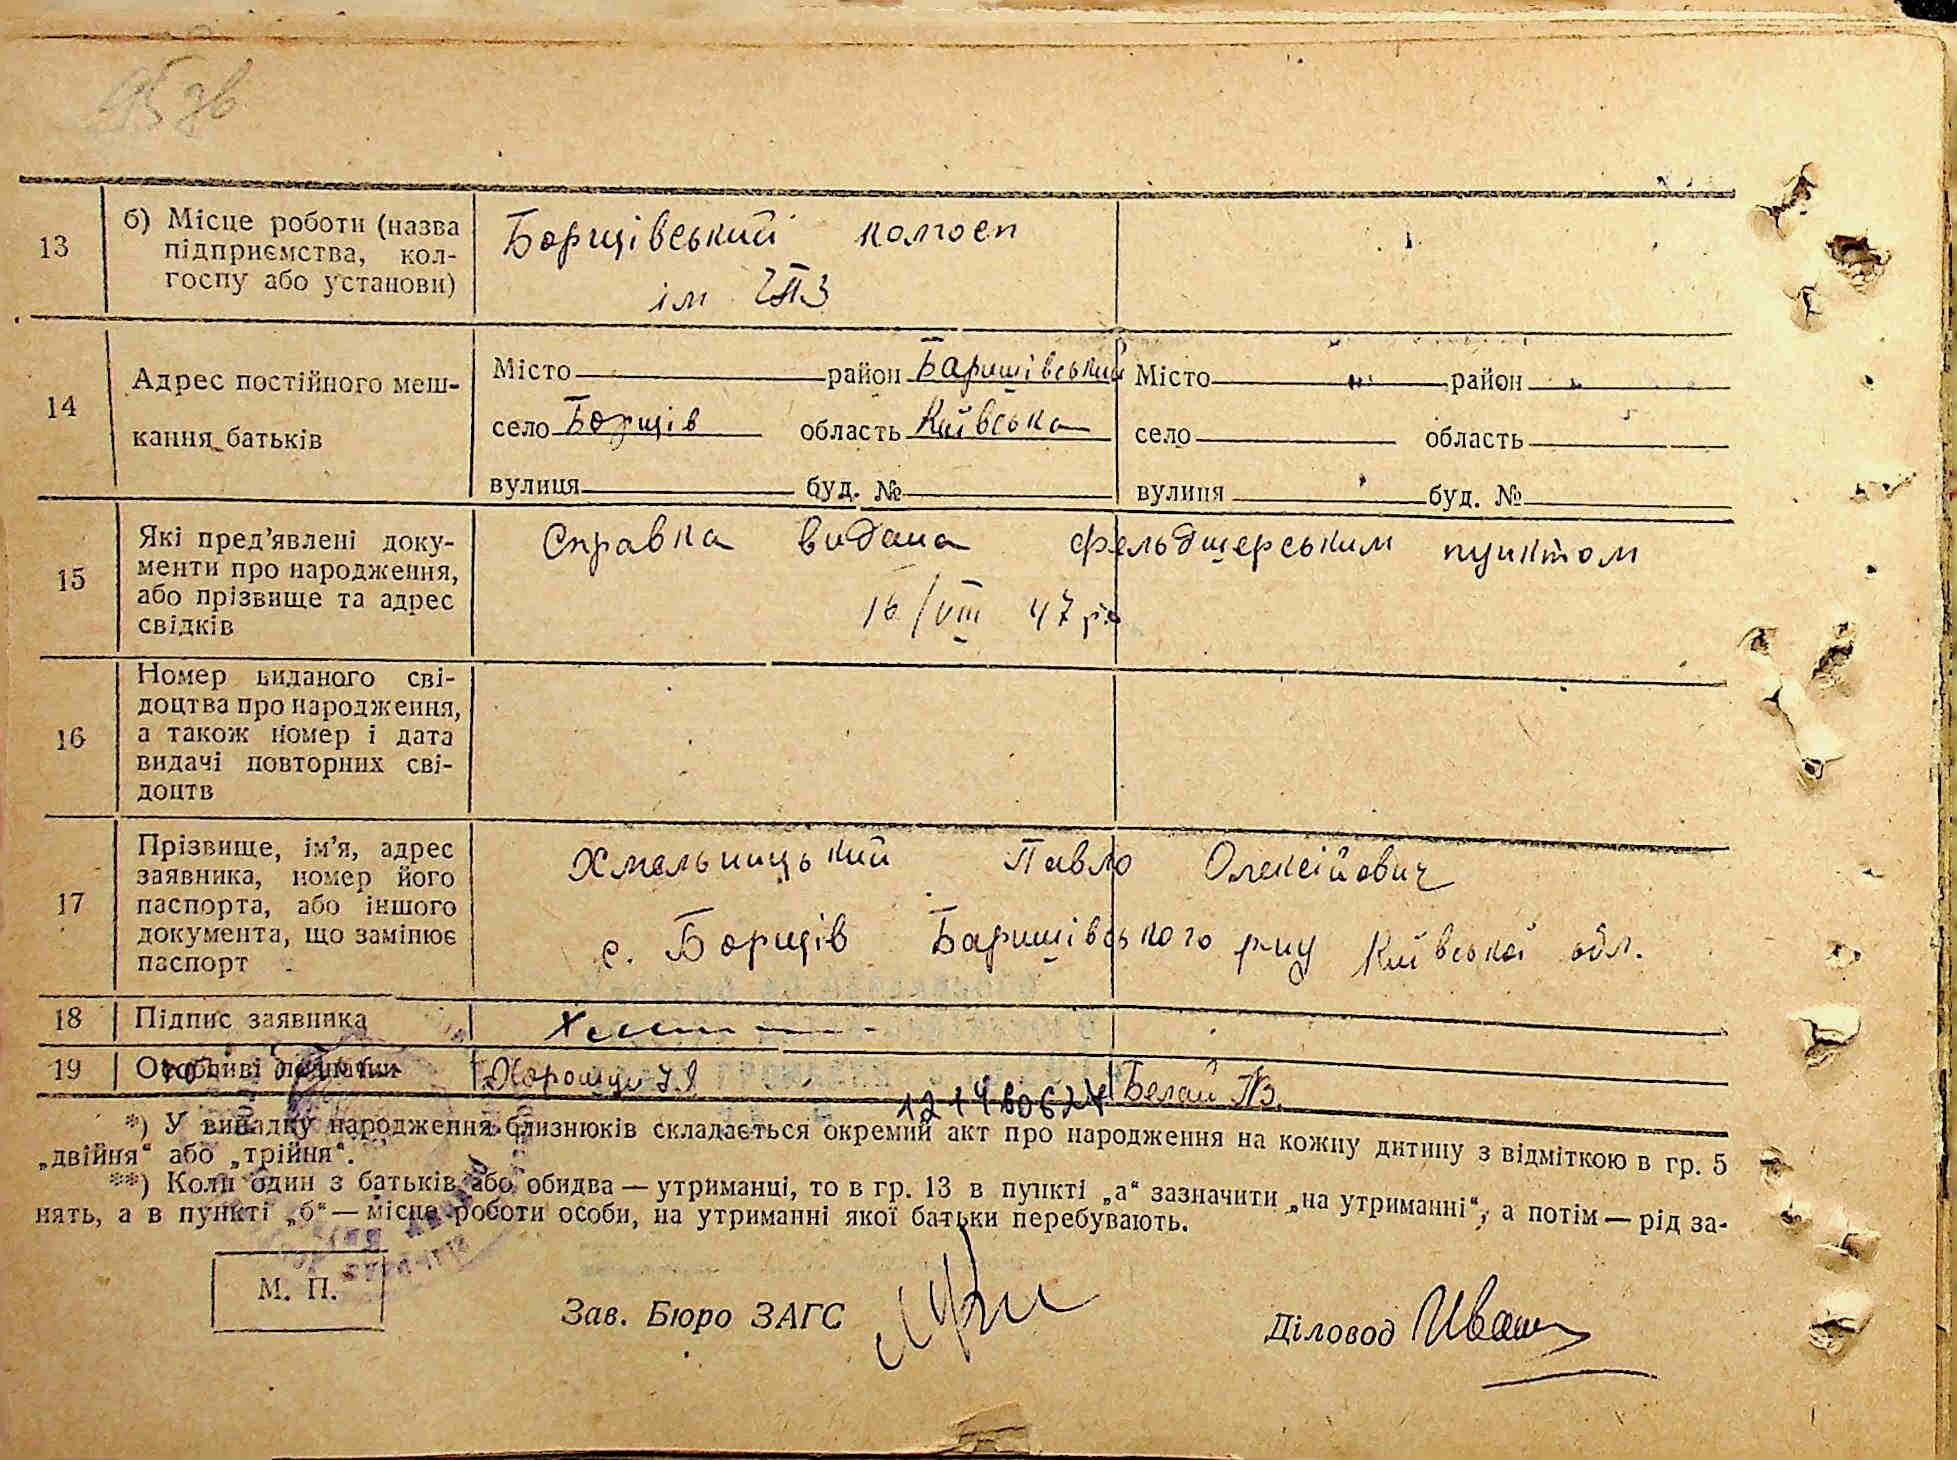 95 зв
13 б) Місце роботи (назва Борщівський колгосп
підприємства, кол-
госпу або установи) ім ЧПЗ
Місто район Баришівський Місто район
14 Адрес постійного меш-
село Борщів область Київська село область
кання батьків
вулиця буд. № вулиця буд. №
15 Які пред'явлені доку- Справка видана фельдшерським пунктом
менти про народження,
або прізвище та адрес 16/VIII 47 р.
свідків
Номер виданого сві-
доцтва про народження,
16 а також номер і дата
видачі повторних сві-
доцтв
Прізвище, ім'я, адрес Хмельницький Павло Олексійович
заявника, номер його
17 паспорта, або іншого
документа, що замінює с. Борщів Баришівського р-ну Київської обл.
паспорт
18 Підпис заявника
19 Особливі позначки Белай
*) У випадку народження близнюків складається окремий акт про народження на кожну дитину з відміткою в гр. 5
„двійня“ або „трійня“.
**) Коли один з батьків або обидва — утриманці, то в гр. 13 в пункті „а“ зазначити „на утриманні“, а потім — рід за-
нять, а в пункті „б“ — місце роботи особи, на утриманні якої батьки перебувають.
М. П.
Зав. Бюро ЗАГС
Діловод